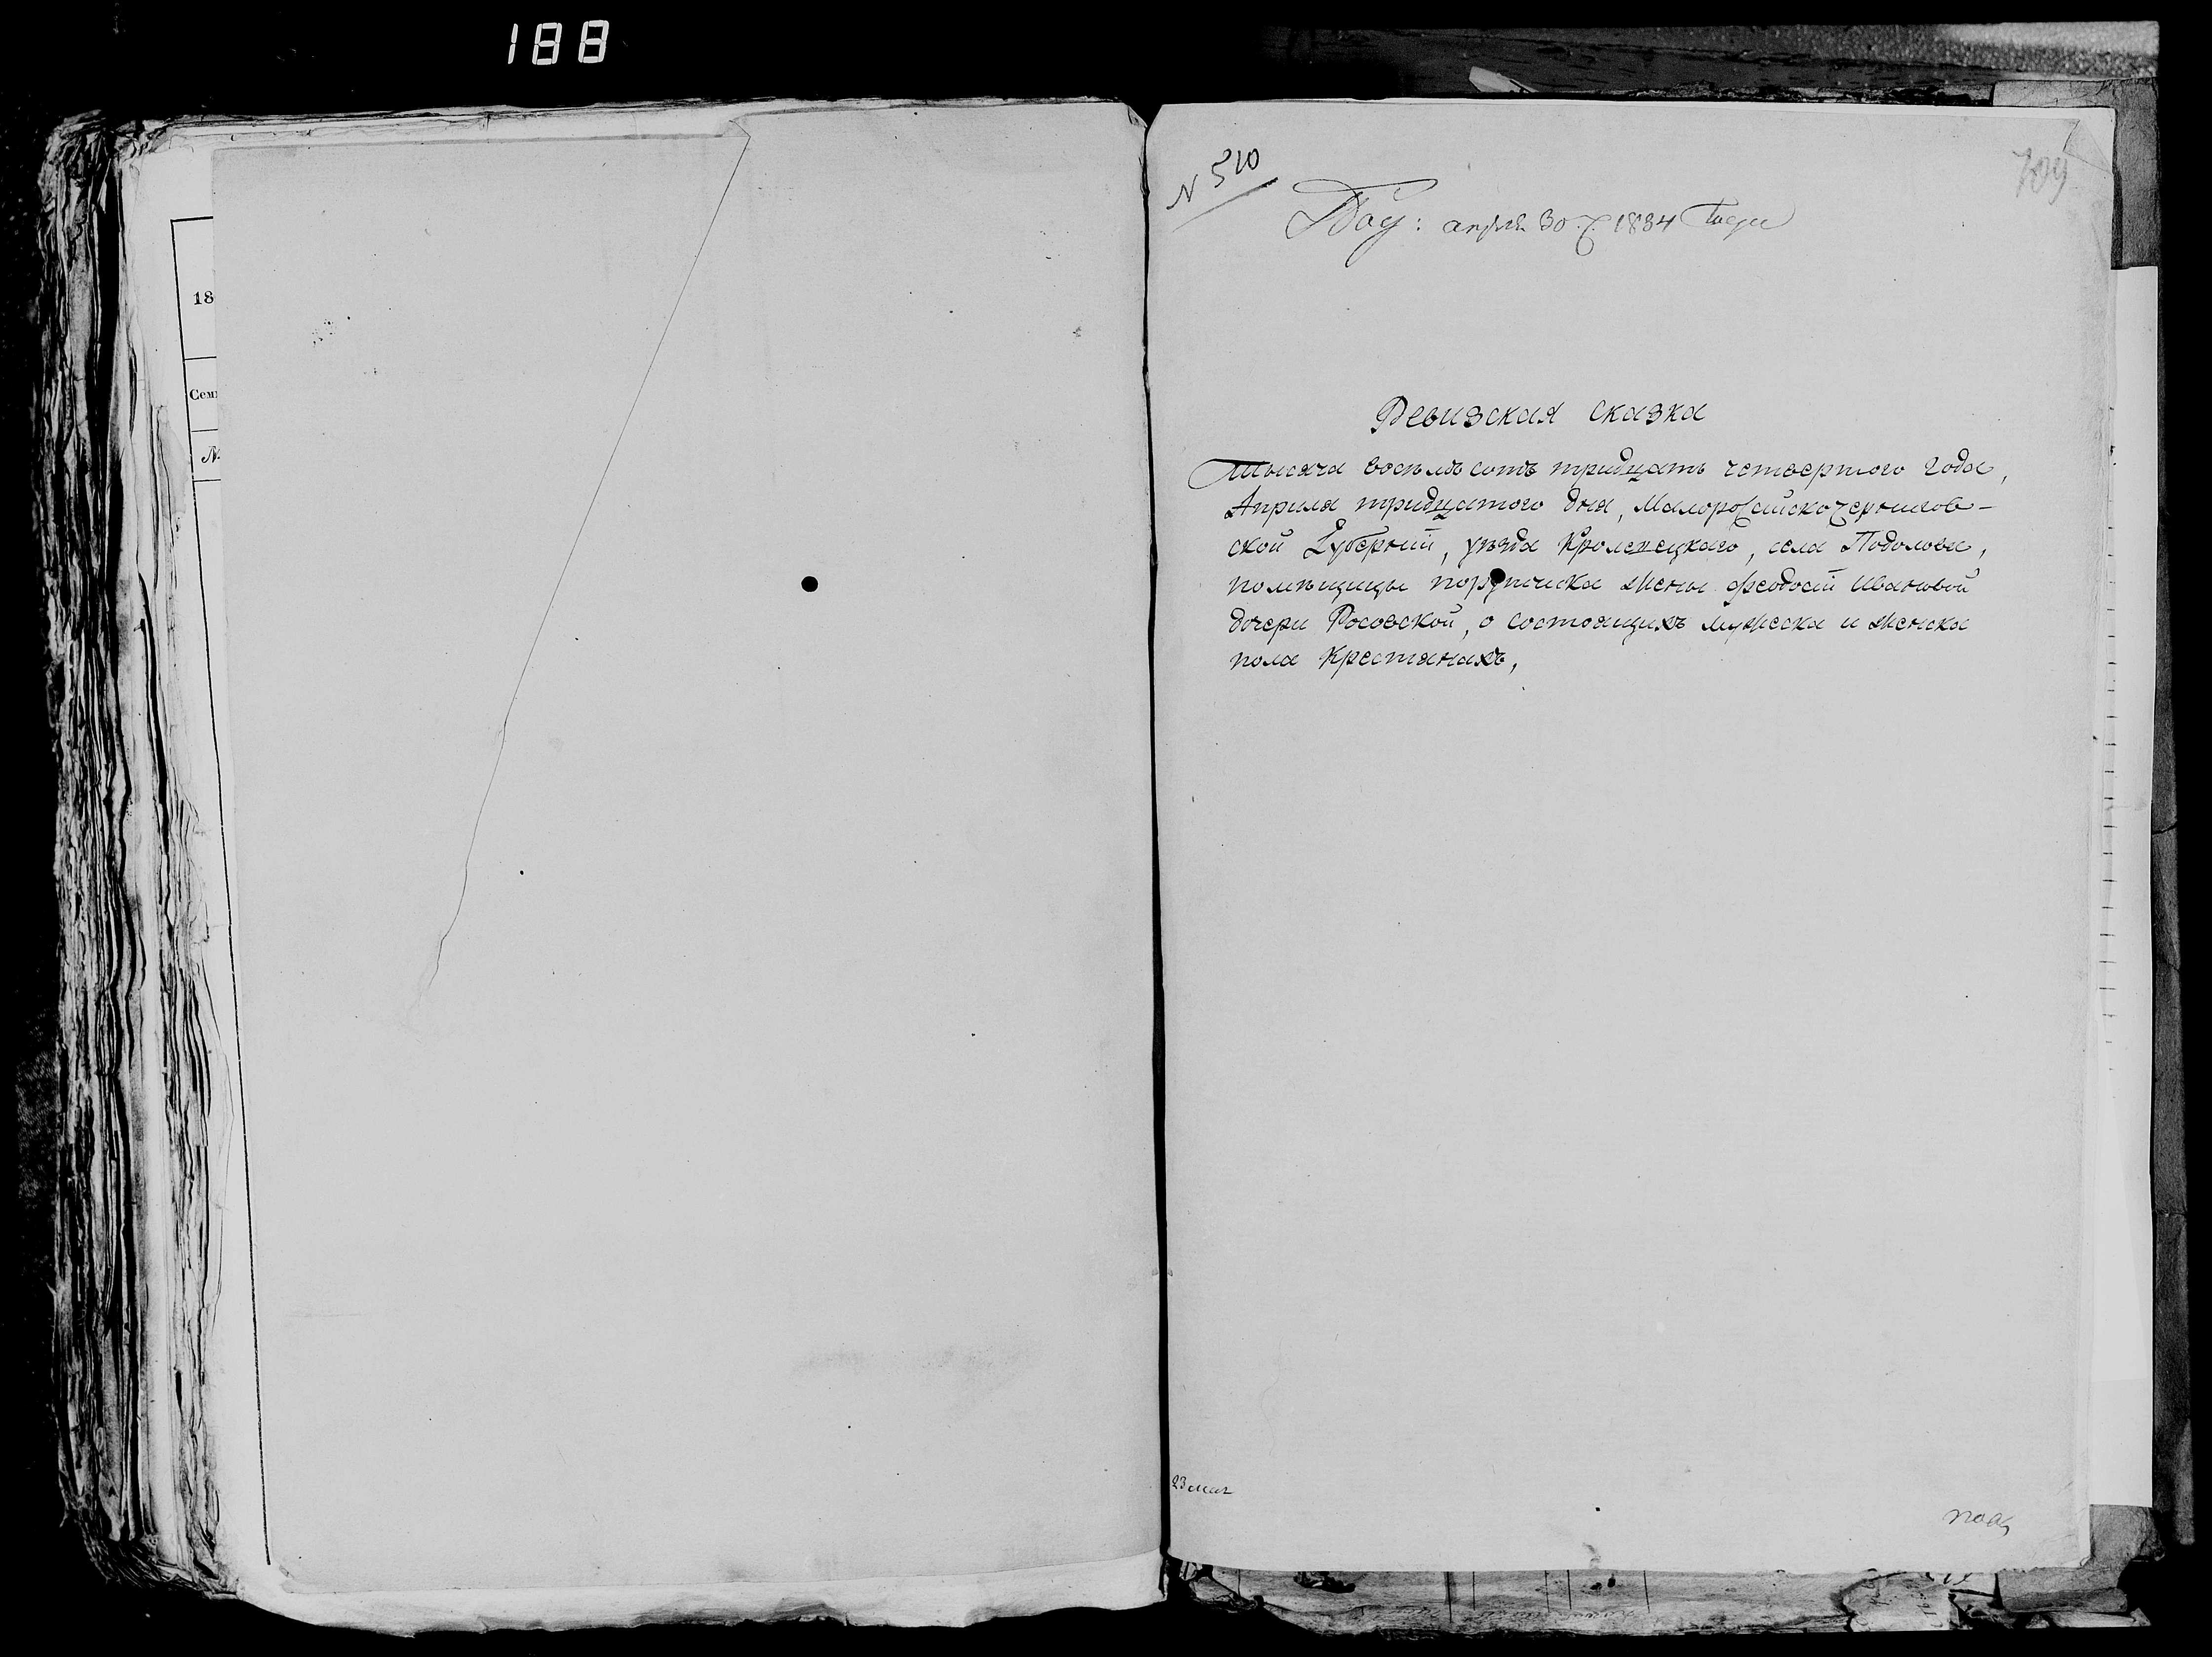 188
18
Сем
№
N 510
709
Под: апреля 30 д. 1834 Года
Ревизская сказка
Тысяча восемь сотъ тридцать четвертого года,
Апреля тридцатого дня, Малоросийско Чернигов-
ской Губернии, уезда Кролевецкаго, села Подолова,
помещицы порутчика жены Феодосии Ивановой
дочери Росовской, о состоящихъ мужеска и женска
пола Крестянахъ,